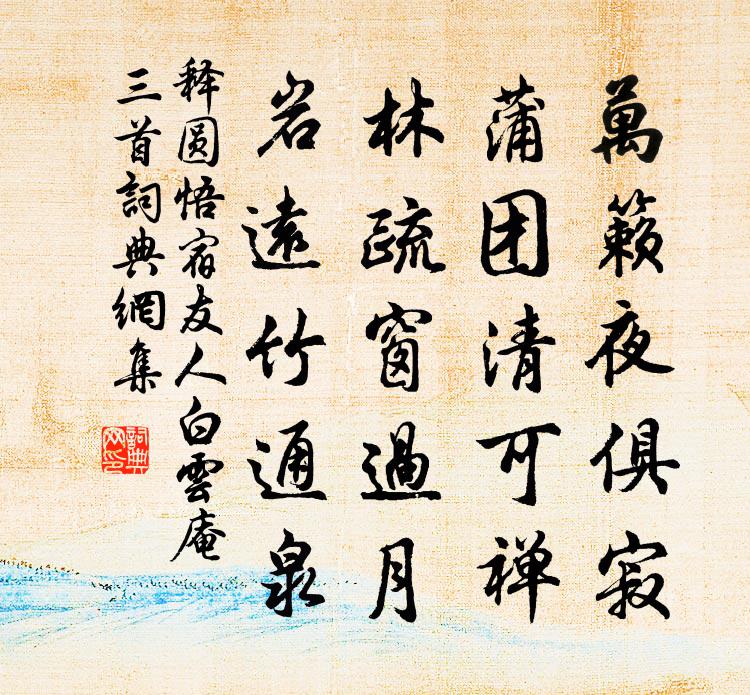 萬籟夜俱寂
蒲团清可禅
林疏窗過月
岩遠竹通泉
释圆悟宿友人白雲庵
三首詞典網集
詞典
网印